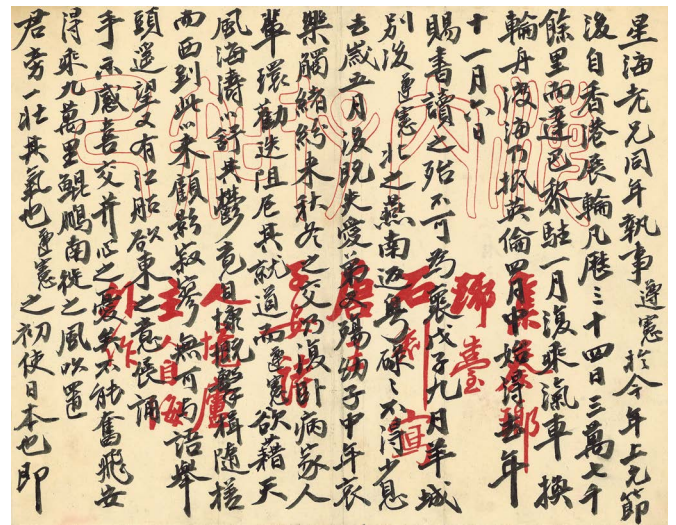 星海老兄同年執事遵憲於今年上元節
後自香港展輪凡歷三十四日三萬七千
餘里而達巴黎駐一月復乘汽車換
輪舟渡海乃抵英倫四月中始得去年
十一月六日
賜書讀之殆不可為褱戊子九月羊城
別後遵憲北之燕南返粵碌々不得少息
去歲五月後失愛弟殤幼子中年哀
樂觸緒紛來秋冬之交乃復卧病家人
輩環勸迭阻尼其就道而遵憲欲藉天
風海濤以舒其鬱竟自隨槎
而西到此以來顧影寂寥無可与語舉
頭遥望又有江船欲東之意悵誦
手示感喜交并心之憂矣不能奮飛安
得乘九萬里鯤鵬南徙之風吹置
君旁一壯其氣也遵憲之初使日本也即
人境廬
主人自海
外作